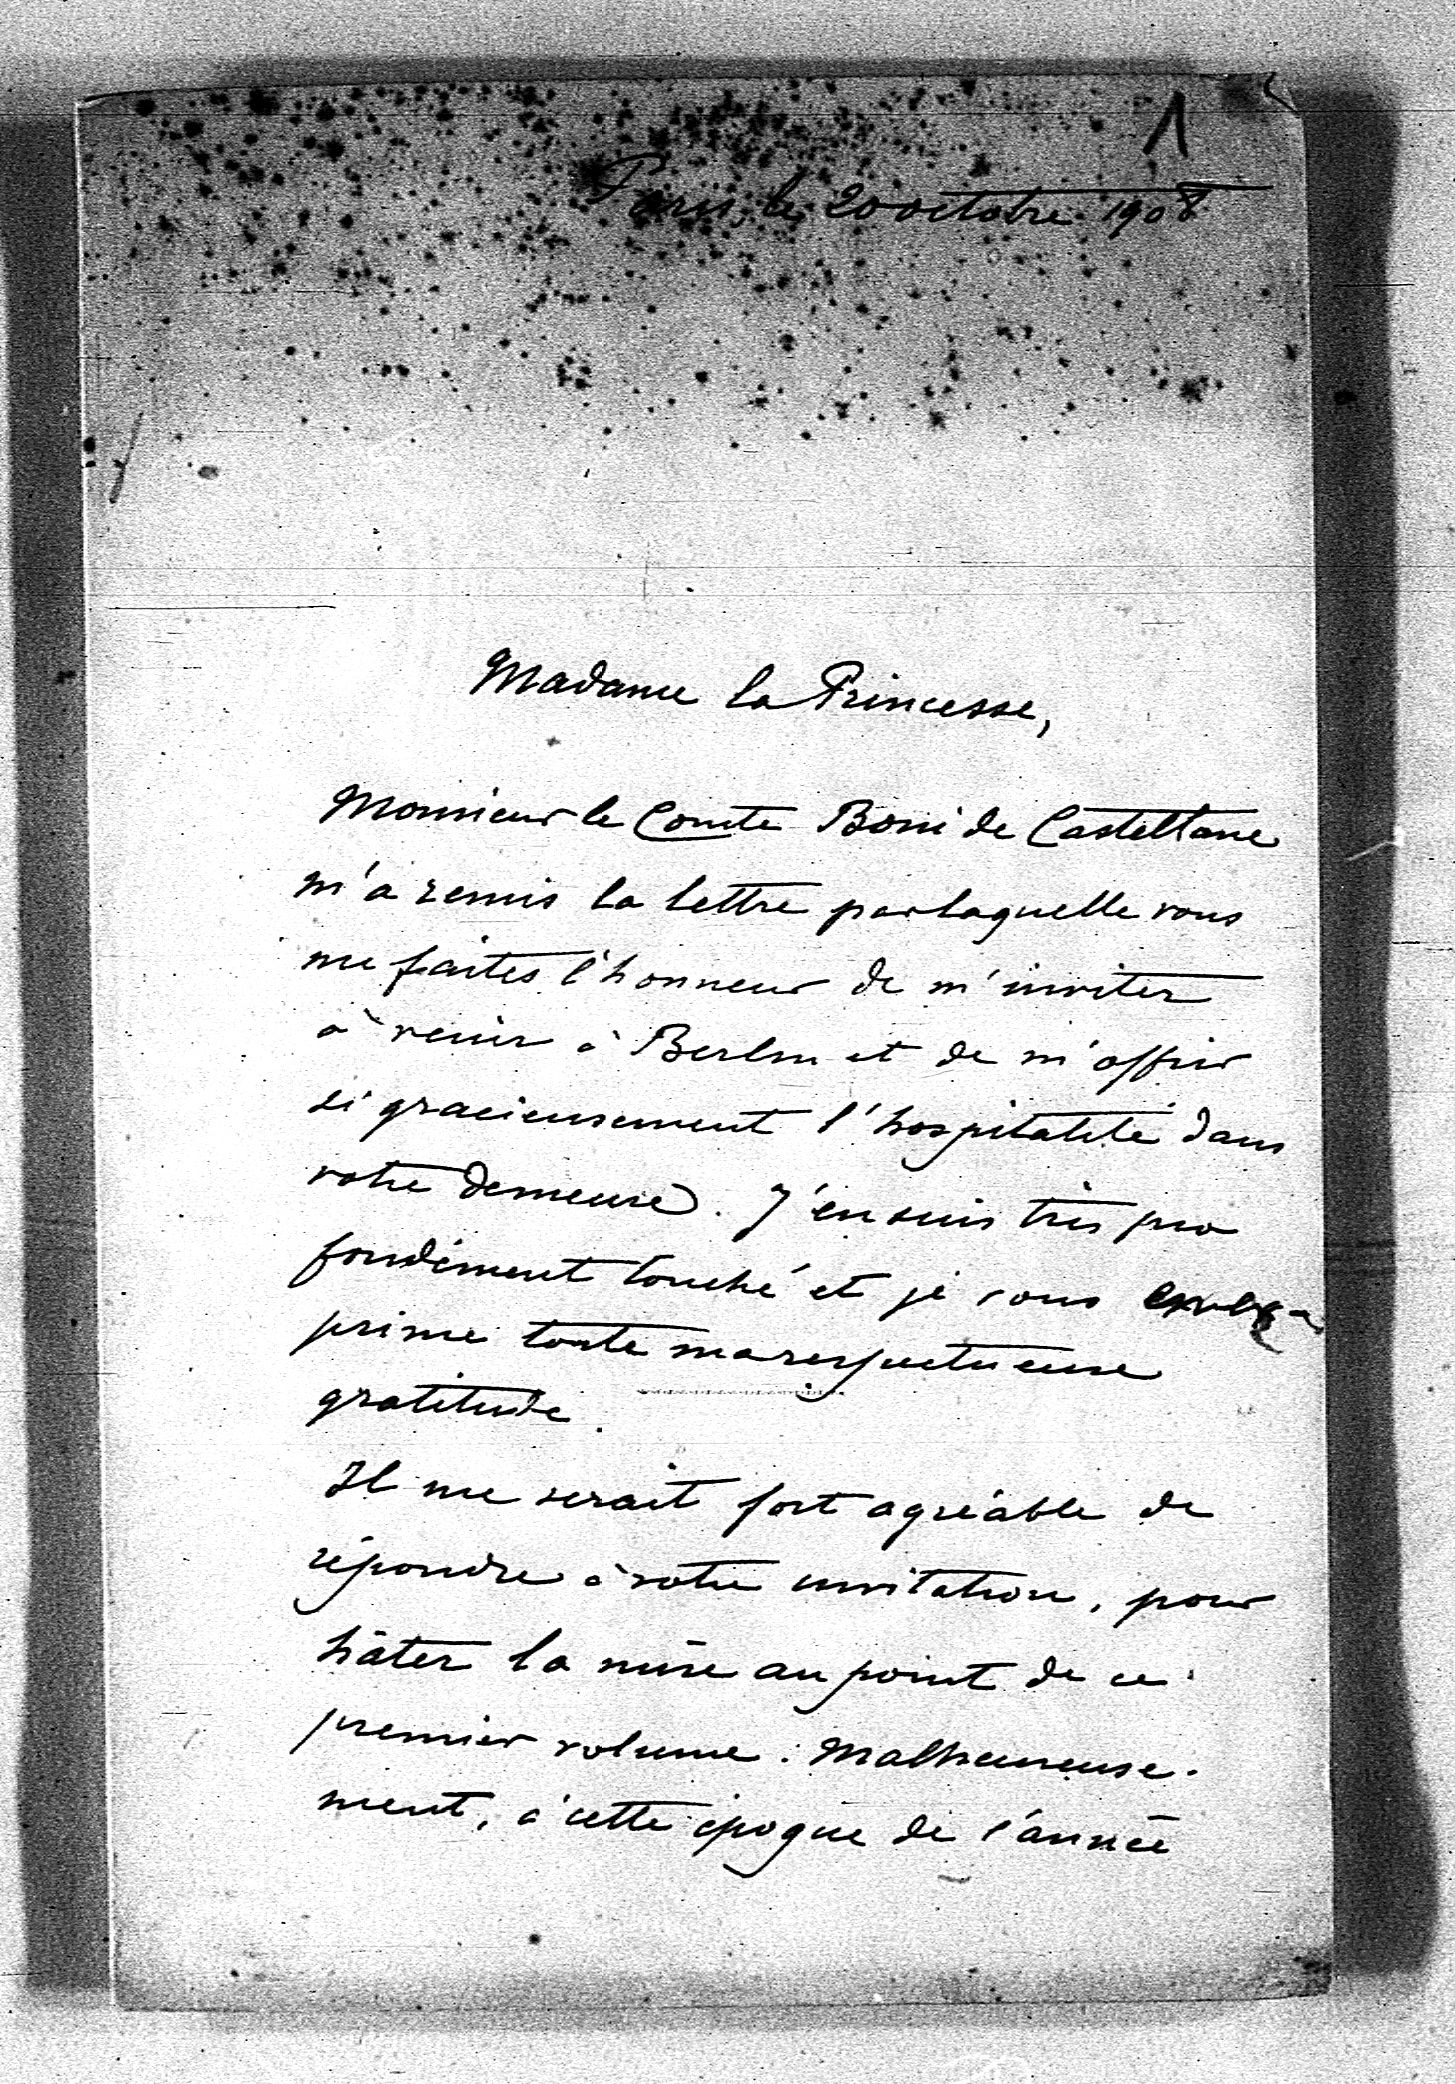 1
Paris, le 20 octobre 1908
Madame la Princesse,
Monsieur le Comte Boni de Castellane
m'a remis la lettre par laquelle vous
me faites l'honneur de m'inviter
à venir à Berlin et de m'offrir
si gracieusement l'hospitalité dans
votre demeure. J'en suis très pro
fondément touché et je vous
prime toute ma respectueuse
gratitude.
Il me serait fort agréable de
répondre à votre invitation, pour
hâter la mise au point de ce
premier volume. Malheureuse-
ment, à cette époque de l'année